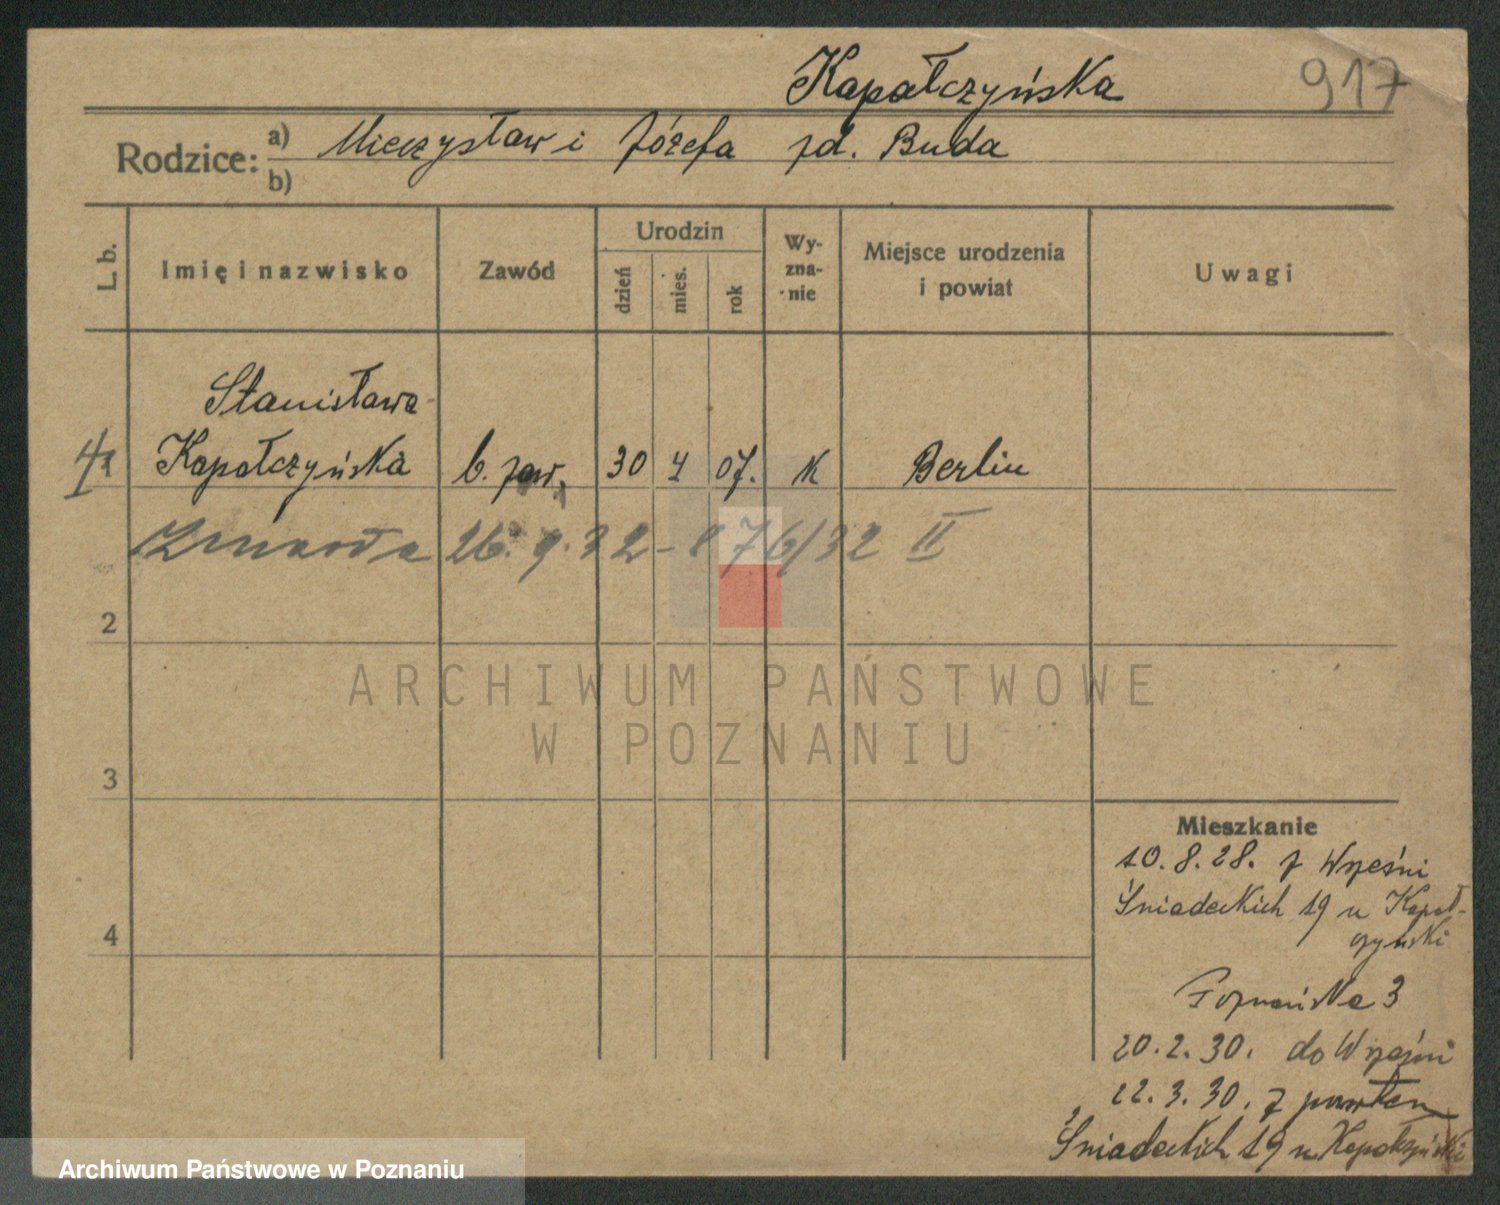 Kapałczyńska
917
Rodzice: a) Mieczysław i Józefa zd. Buda
b)
L. b.
Imię i nazwisko
Zawód
Urodzin
dzień
mies.
rok
Wy-
zna-
nie
Miejsce urodzenia
i powiat
Uwagi
Stanisława
1 Kapałczyńska b. zaw. 30 4 07. K Berlin
Zmarła 26. 9. 32 - 876/32 II
2
3
4
ARCHIWUM PAŃSTWOWE
W POZNANIU
Mieszkanie
10. 8. 28. z Wrześni
Śniadeckich 19 u Kapał-
czyński
Poznańska 3
20. 2. 30. do Wrześni
22. 3. 30. z powrotem
Śniadeckich 19 u Kapałczyński
Archiwum Państwowe w Poznaniu